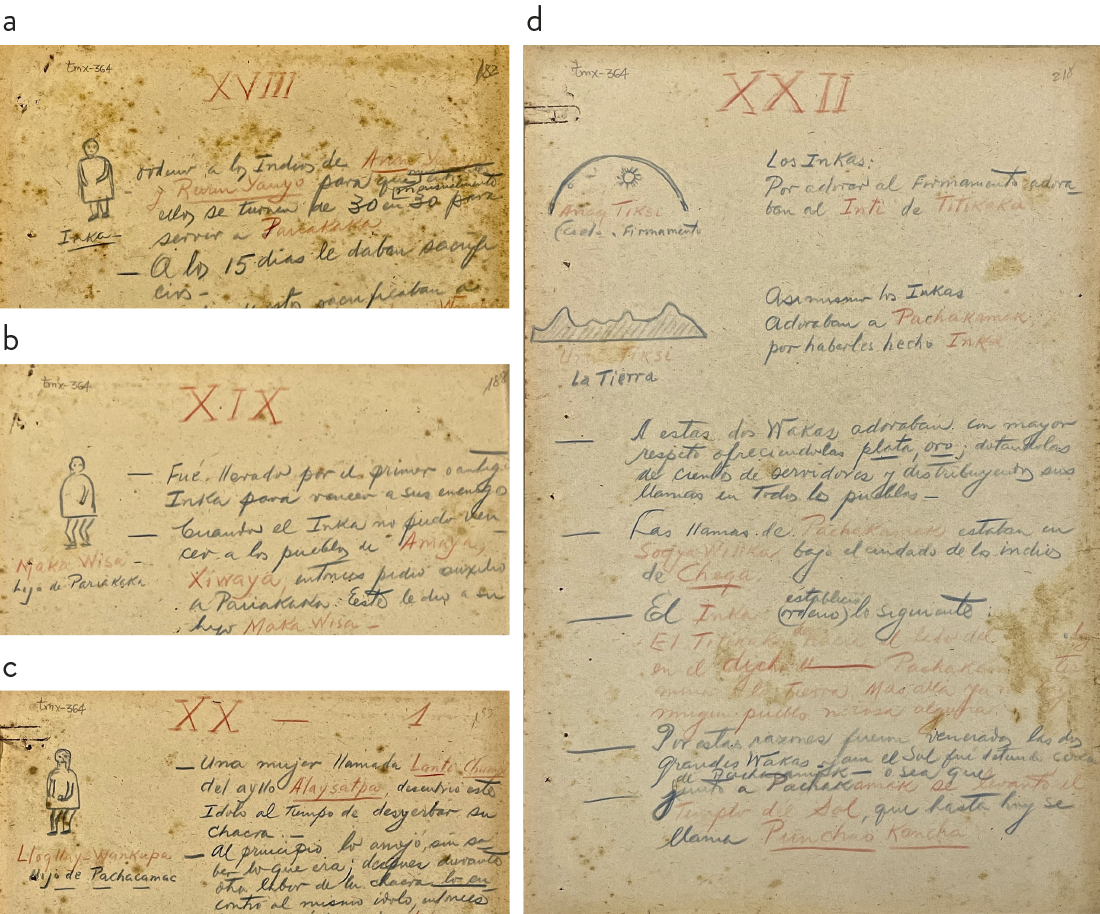 a
tmx-364
182
XVIII
ordenó a los Indios de Anan Yauyo
y Rurin Yauyo para que
mensualmente
ellos se turnen de 30 en 30 para
servir a Pariakaka.
Inka
— A los 15 dias le daban sacrifi
cios -
sacrificaban a
b
tmx-364
188
XIX
— Fué llevado por el primer o antiguo
Inka para vencer a sus enemigo
— Cuando el Inka no pudo ven
cer a los pueblos de Amaya,
Xiwaya, entonces pidió auxilio
a Pariakaka. Este le dio a su
hijo Maka Wisa -
Maka Wisa -
hijo de Pariakaka
c
tmx-364
XX — 1
— Una mujer llamada Lanti Chumpi
del ayllo Alaysatpa, descubrió este
Idolo al tiempo de desyerbar su
Chacra. -
— Al principio lo arrojó, sin sa
ber lo que era; despues durante
otra labor de la chacra lo en
contró al mismo idolo, entonces
Lloqllay-Wankupa
Hijo de Pachacamac
d
tmx-364
218
XXII
Anaq Tiksi
(Cielo. Firmamento
Los Inkas:
Por adorar al Firmamento adora
ban al Inti de Titikaka
Asimismo los Inkas
Adoraban a Pachakamak,
por haberles hecho Inka
Tiksi
La Tierra
— A estas dos Wakas adoraban con mayor
respeto ofreciendolas plata, oro; dotandolas
de ciento de servidores y distribuyendo sus
llamas en Todos los pueblos -
— Las llamas de Pachakamak estaban en
Sogya Willka bajo el cuidado de los indios
de Cheqa
establecio
— El Inka (ordenó) lo siguiente:
El Titikaka el lado del
en el dicho " — Pachakam
la tierra. Mas alla ya no hay
ningun pueblo ni cosa alguna.
— Por estas razones fueron venerados las dos
grandes Wakas. Y aun el Sol fué situado cerca
de Pachakamak — o sea que
— junto a Pachakamak se levantó el
Templo del Sol, que hasta hoy se
llama Punchao Kancha